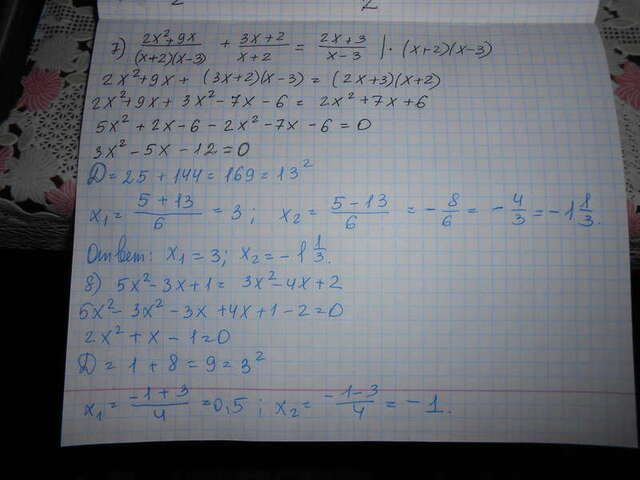 7) (2x²+9x)/((x+2)(x-3)) + (3x+2)/(x+2) = (2x+3)/(x-3) | · (x+2)(x-3)
2x²+9x + (3x+2)(x-3) = (2x+3)(x+2)
2x²+9x + 3x² - 7x - 6 = 2x² + 7x + 6
5x² + 2x - 6 - 2x² - 7x - 6 = 0
3x² - 5x - 12 = 0
D = 25 + 144 = 169 = 13²
x₁ = (5+13)/6 = 3 ; x₂ = (5-13)/6 = -8/6 = -4/3 = -1 1/3.
Ответ: x₁ = 3; x₂ = -1 1/3.
8) 5x² - 3x + 1 = 3x² - 4x + 2
5x² - 3x² - 3x + 4x + 1 - 2 = 0
2x² + x - 1 = 0
D = 1 + 8 = 9 = 3²
x₁ = (-1+3)/4 = 0,5 ; x₂ = (-1-3)/4 = -1.